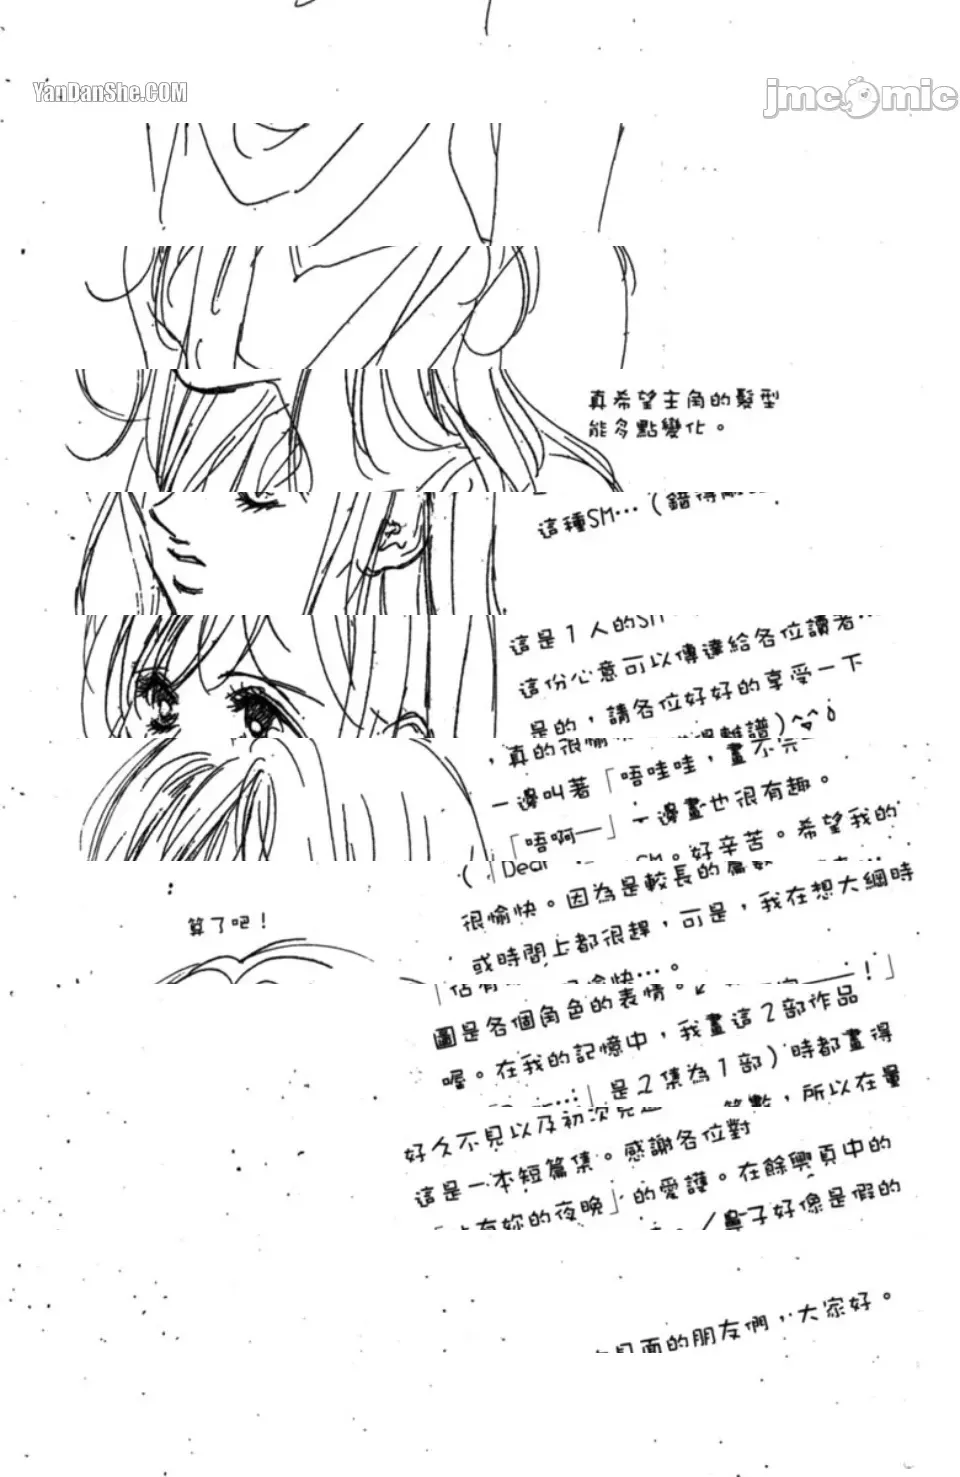 YanDanShe.COM
jmcomic
真希望主角的髮型
能多點變化。
這種SM…（錯得離
這是1人的SM
這份心意可以傳達給各位讀者…
是的，請各位好好的享受一下
離譜)^^
，真的很愉
一邊叫著「唔哇哇，畫不完
「唔啊—」一邊畫也很有趣。
(「Dear SM。好辛苦。希望我的
很愉快。因為是較長的篇數
或時間上都很趕，可是，我在想大綱時
算了吧！
「佔有 愉快…。
圖是各個角色的表情。 ！」
喔。在我的記憶中，我畫這2部作品
」是2集為1部)時都畫得
好久不見以及初次見面 算數，所以在量
這是一本短篇集。感謝各位對
有妳的夜晚」的愛護。在餘興頁中的
鼻子好像是假的
見面的朋友們，大家好。